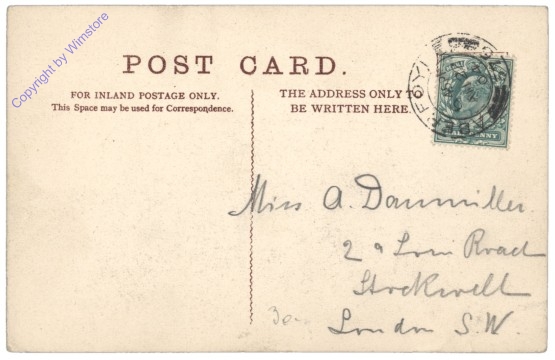 Copyright by Wimstore
POST CARD.
FOR INLAND POSTAGE ONLY.
This Space may be used for Correspondence.
THE ADDRESS ONLY T
BE WRITTEN HERE.
Miss A. Dannmiller.
Road
Stockwell
London S.W.